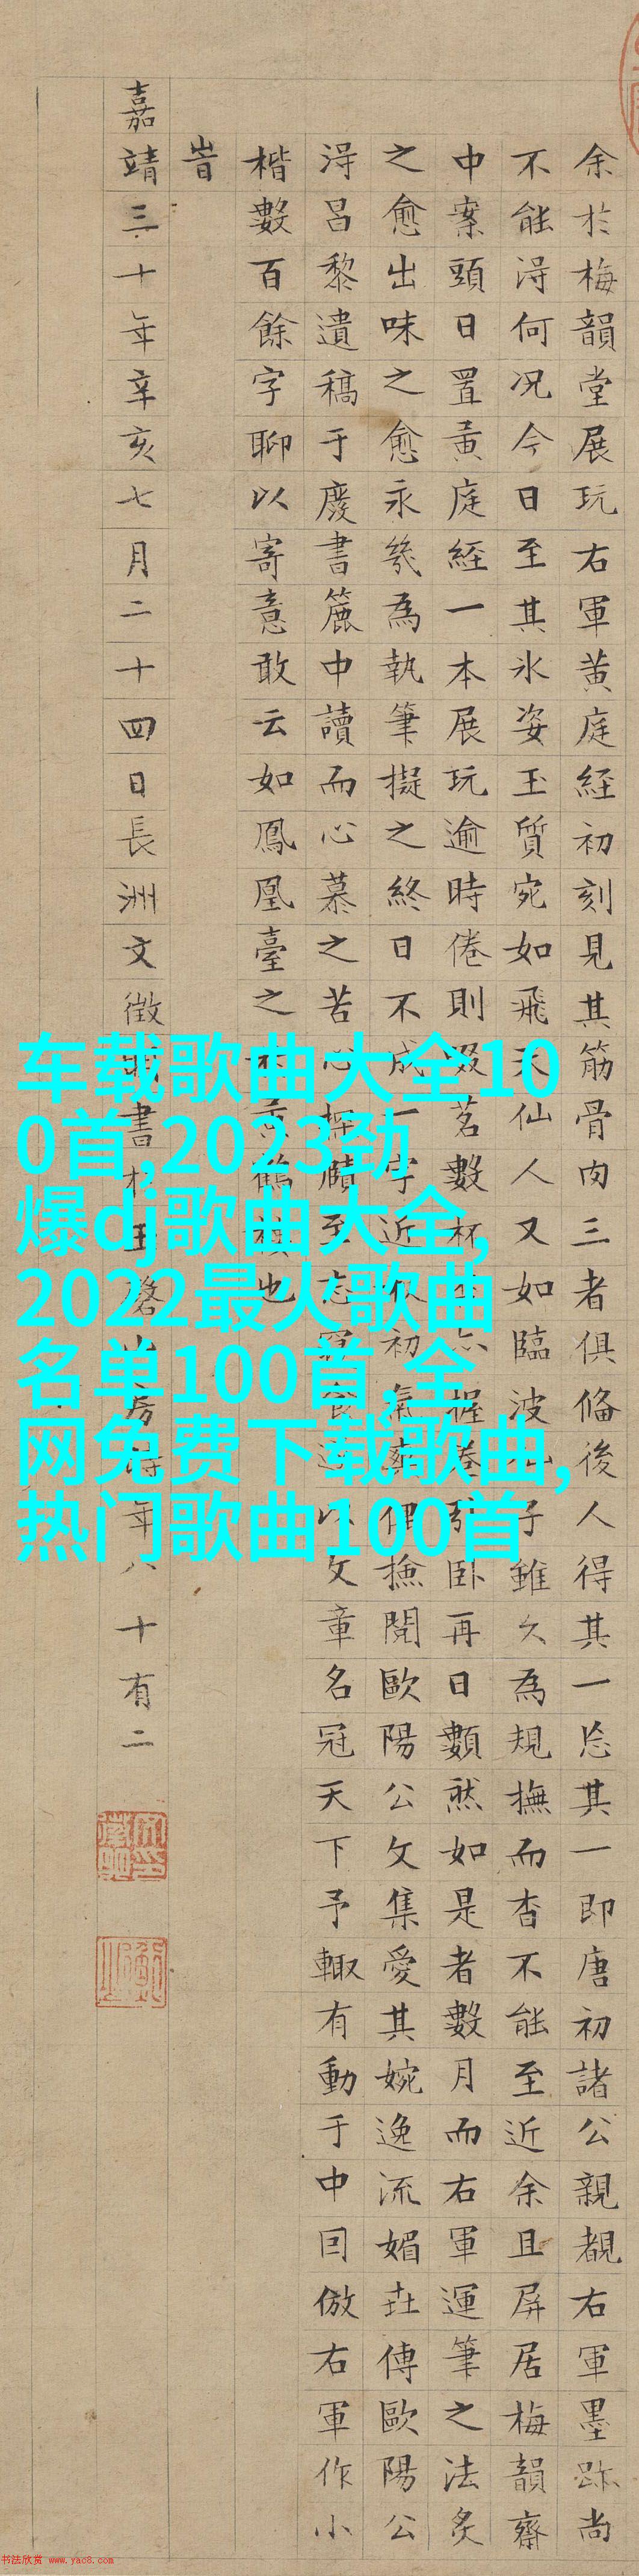 余於梅韻堂展玩右軍黄庭経初刻見其筋骨肉三者俱俻後人得其一忘其一即唐初諸公親覩右軍墨跡尚
不能淂何况今日至其氷姿玉質宛如飛天仙人又如臨波子雖久為規撫而杳不能至近余且屏居梅韻齋
中案頭日置黄庭経一本展玩逾時倦則啜茗數杯卧再日數然如是者數月而右軍運筆之法炙
之愈出味之愈永幾為執筆擬之終日不成一字近初氣伊撿閲歐陽公文集愛其婉逸流媚世傳歐陽公
淂吕黎遺稿于廢書簏中讀而心慕之苦心探賾至忘以文章名冠天下予輙有動于中囙倣右軍作小
楷數百餘字聊以寄意敢云如鳳凰臺之黄鶴樓也
旹
嘉靖三十年辛亥七月二十四日長洲文徵明書於玉磬山房時年八十有二
车载歌曲大全10
0首,2023劲
爆dj歌曲大全,
2022最火歌曲
名单100首,全
网免费下载歌曲,
热门歌曲100首
书法欣赏 www.yac8.com